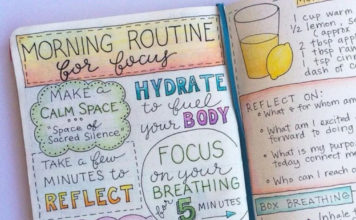 MORNING ROUTINE
for focus
MAKE A
CALM SPACE...
"Space of
Sacred Silence"
HYDRATE
to fuel
your BODY
TAKE A FEW
MINUTES TO
REFLECT
FOCUS
on your
BREATHING
for 5 MINUTES
1 cup warm
½ lemon, s
(approx
2 tbsp app
1 tbsp ra
1 tsp cinn
dash of C
REFLECT ON:
• What & for whom am
• What am I excited
forward to doing
• What is my purpo
today connect m
• Who can I reach o
BOX BREATHING